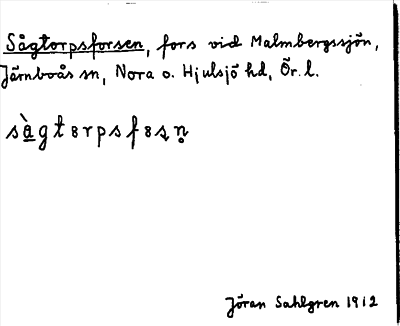 Sågtorpsforsen, fors vid Malmbergssjön,
Järnboås sn, Nora o. Hjulsjö hd, Ör. l.
sàgtɜrpsfɜsn̥
Jöran Sahlgren 1912